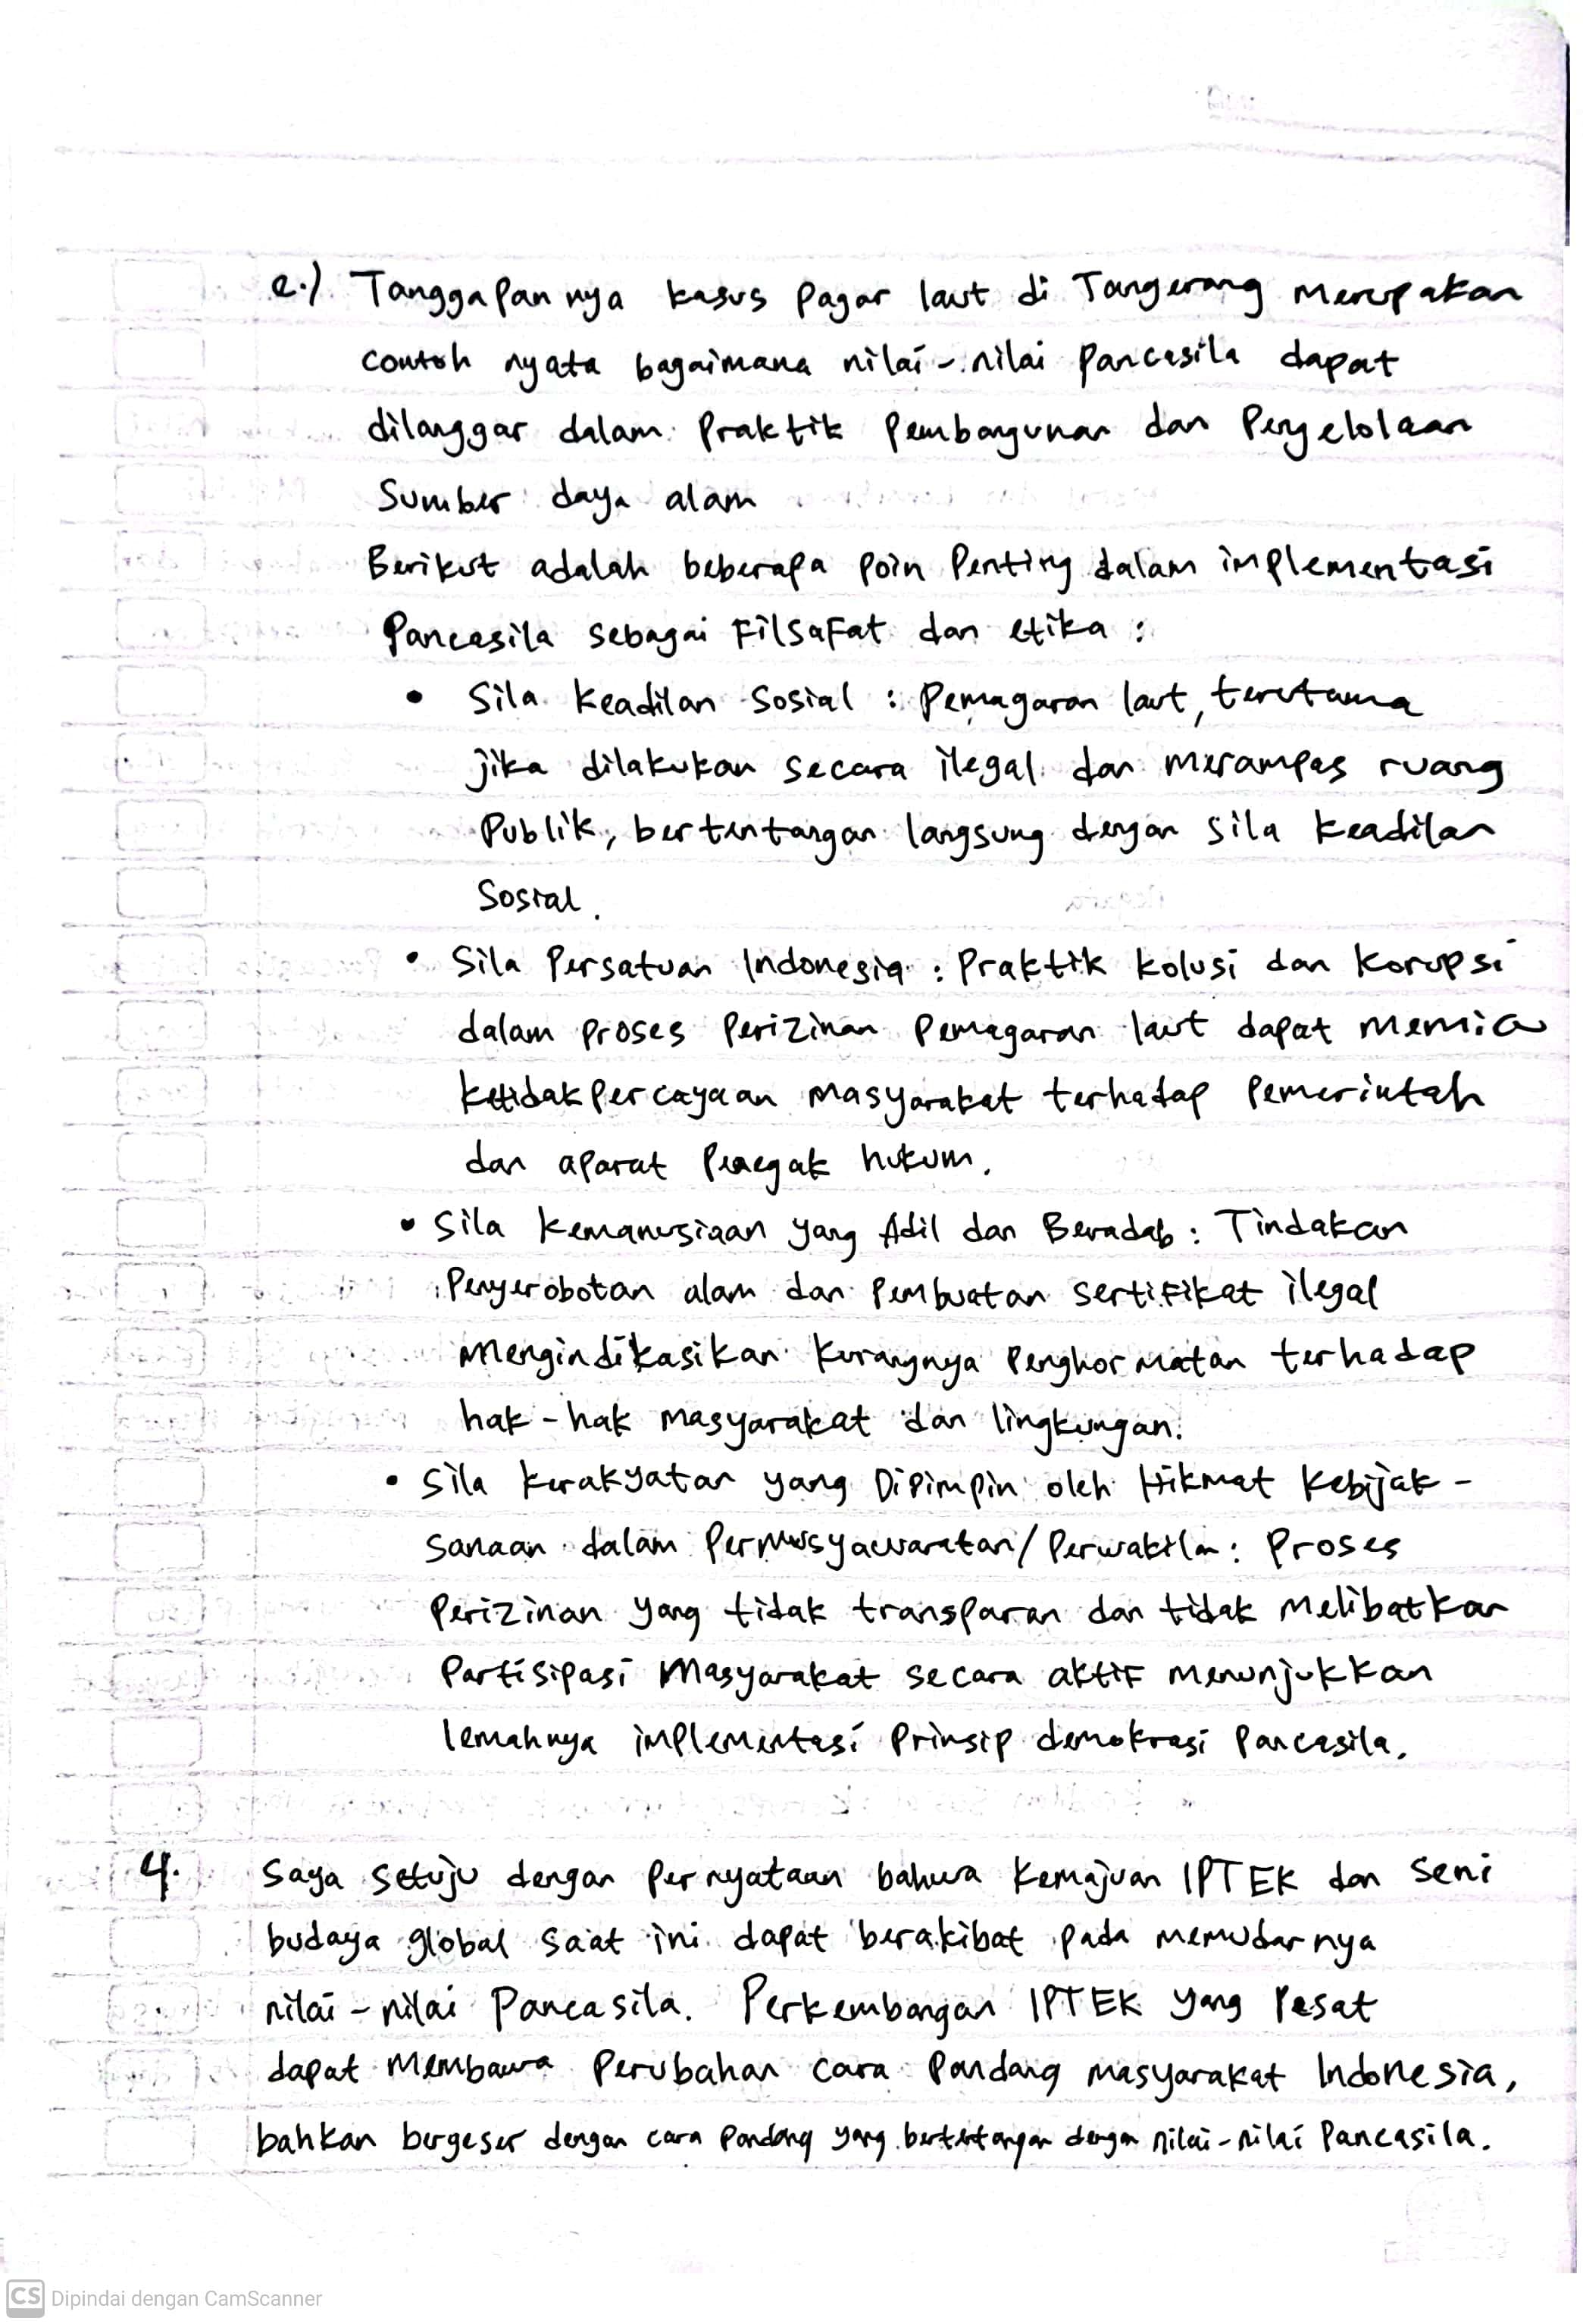 e.) Tanggapannya kasus pagar laut di Tangerang merupakan
contoh nyata bagaimana nilai-nilai Pancasila dapat
dilanggar dalam praktik pembangunan dan pengelolaan
Sumber daya alam
Berikut adalah beberapa poin penting dalam implementasi
Pancasila sebagai Filsafat dan etika :
• Sila Keadilan Sosial : Pemagaran laut, terutama
jika dilakukan secara ilegal dan merampas ruang
Publik, bertentangan langsung dengan sila keadilan
Sosial.
• Sila Persatuan Indonesia : Praktik kolusi dan korupsi
dalam proses perizinan pemagaran laut dapat memicu
ketidakpercayaan masyarakat terhadap pemerintah
dan aparat penegak hukum.
• Sila Kemanusiaan yang Adil dan Beradab : Tindakan
Penyerobotan alam dan pembuatan sertifikat ilegal
mengindikasikan kurangnya penghormatan terhadap
hak-hak masyarakat dan lingkungan.
• Sila kerakyatan yang Dipimpin oleh Hikmat Kebijak-
sanaan dalam Permusyawaratan/Perwakilan : Proses
Perizinan yang tidak transparan dan tidak melibatkan
Partisipasi masyarakat secara aktif menunjukkan
lemahnya implementasi prinsip demokrasi Pancasila.
4. Saya setuju dengan pernyataan bahwa kemajuan IPTEK dan seni
budaya global saat ini dapat berakibat pada memudarnya
nilai-nilai Pancasila. Perkembangan IPTEK yang pesat
dapat membawa perubahan cara pandang masyarakat Indonesia,
bahkan bergeser dengan cara pandang yang bertentangan dengan nilai-nilai Pancasila.
CS Dipindai dengan CamScanner